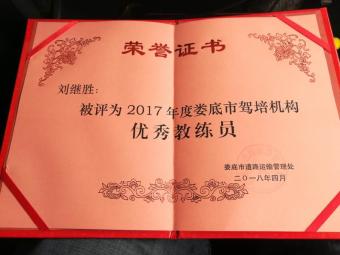 荣誉证书
刘继胜：
被评为2017年度娄底市驾培机构
优秀教练员
娄底市道路运输管理处
二〇一八年四月